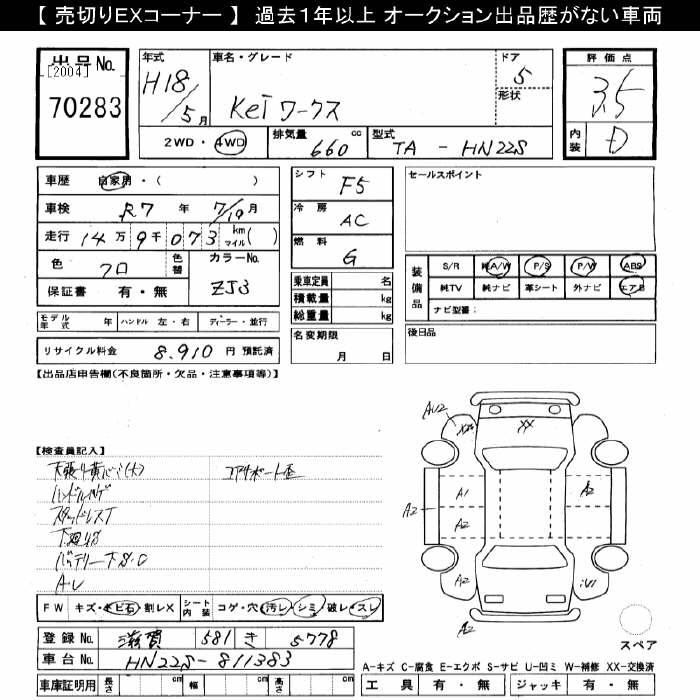 【 売切りEXコーナー 】 過去1年以上 オークション出品歴がない車両
出品No.
[2004]
70283
年式
H18/5月
車名・グレード
Kei ワークス
ドア
5
形状
評価点
3.5
内装
D
2WD・4WD
排気量
660
cc
型式
TA - HN22S
車歴 自家用・( )
車検 R7年 7/19月
走行 14万9千073 km マイル( )
色 クロ
色替
カラーNo.
ZJ3
保証書 有・無
モデル年式 年 ハンドル 左・右 ディーラー・並行
リサイクル料金 8.910 円 預託済
シフト F5
冷房 AC
燃料 G
乗車定員 名
積載量 kg
総重量 kg
名変期限
月 日
セールスポイント
装備品
S/R 純A/W P/S P/W ABS
純TV 純ナビ 革シート 外ナビ エアB
ナビ型番:
後日品
【出品店申告欄(不良箇所・欠品・注意事項等)】
【検査員記入】
ハンドル
スタッドレスT
バッテリー
FW キズ・トビ石・割レX
シート内装 コゲ・穴・汚レ・シミ・破レ・スレ
登録No. 滋賀 581 き 5778
車台No. HN22S-811383
車庫証明用 長さ cm 幅 cm 高さ cm
AU2
XX
A2
A1
A2
A2
A2
A2
スペア
A-キズ C-腐食 E-エクボ S-サビ U-凹ミ W-補修 XX-交換済
工具 有・無 ジャッキ 有・無